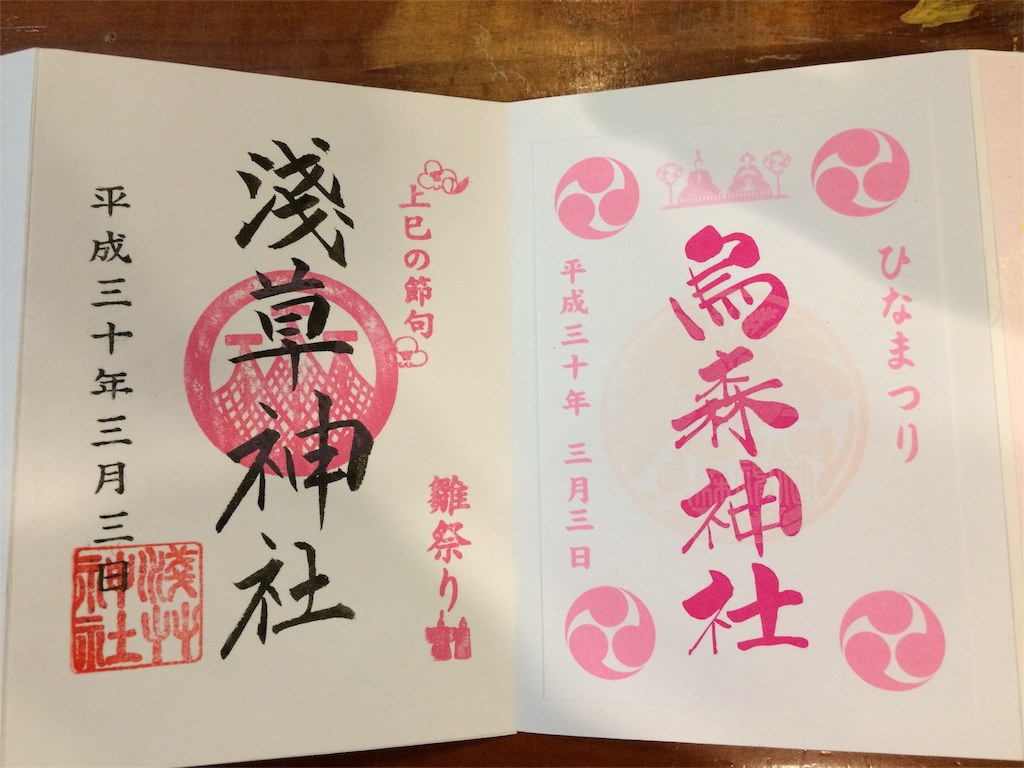 上巳の節句
雛祭り
淺草神社
平成三十年三月三日
淺草神社
ひなまつり
烏森神社
平成三十年 三月三日